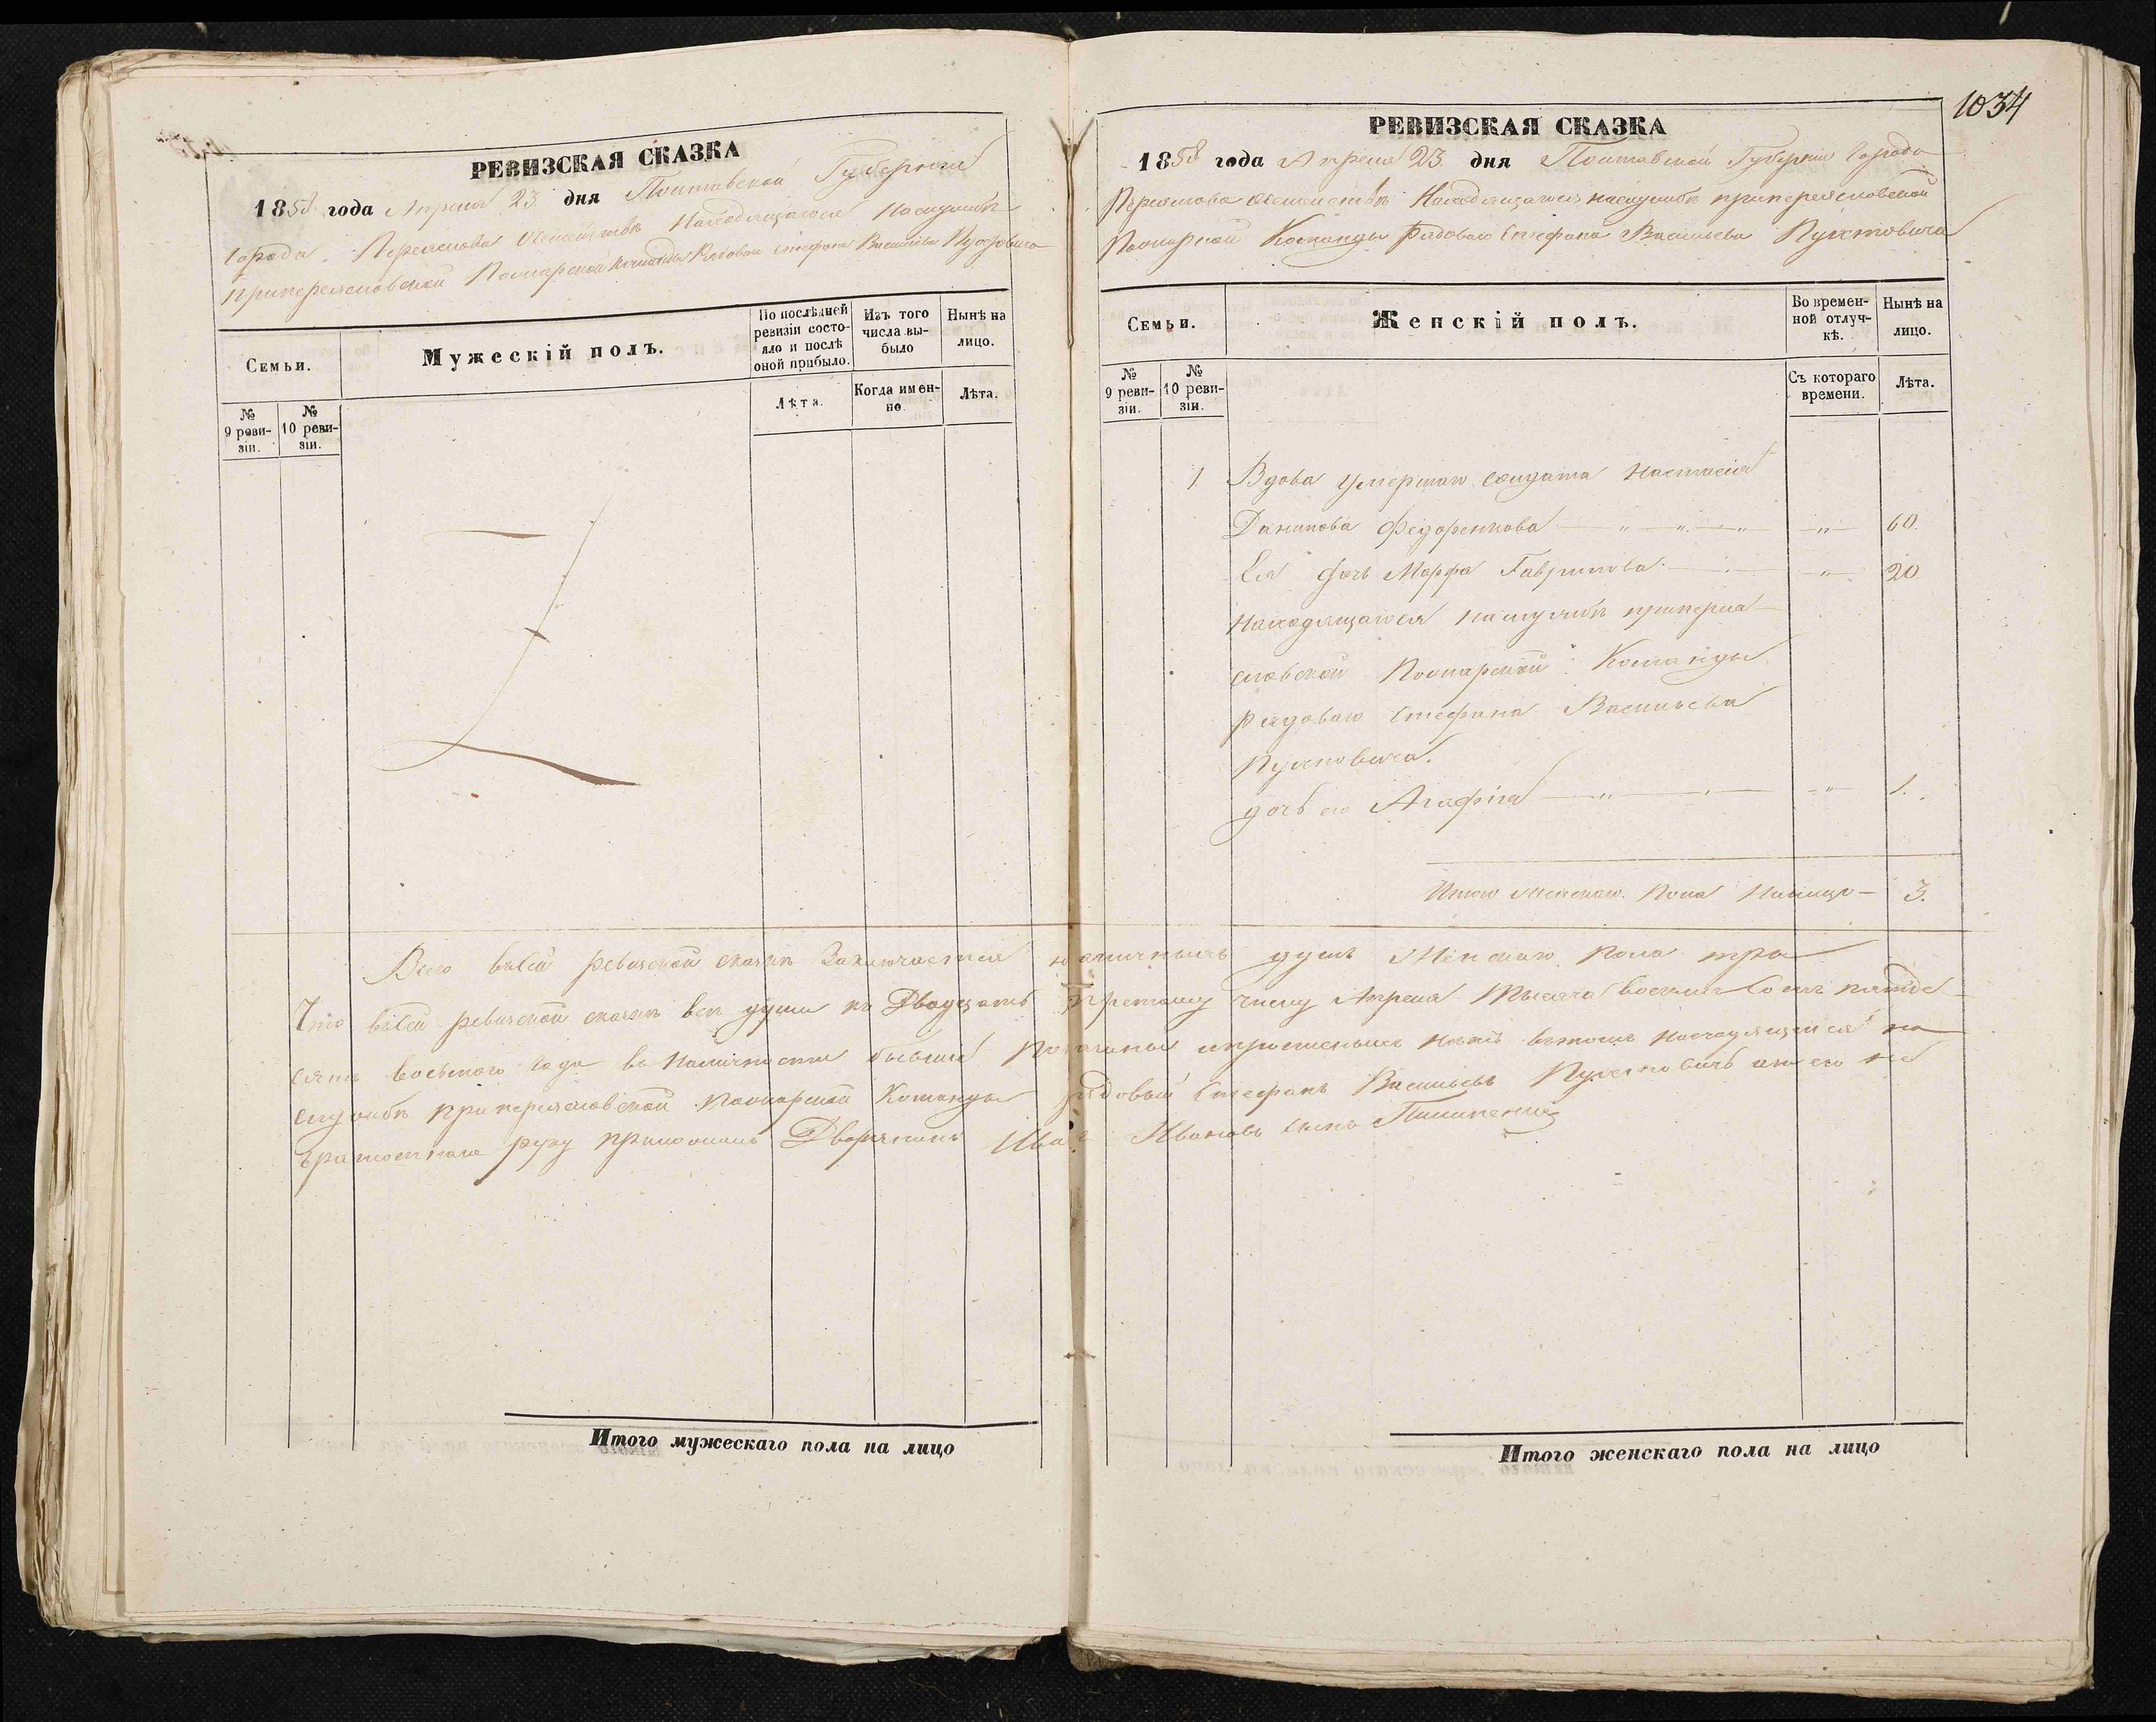 РЕВИЗСКАЯ СКАЗКА
1858 года Апреля 23 дня Полтавской Губернiи
Города Переяслова Семействъ Находящагося наслужбѣ
припереяславской Пожарской Команды Рядоваго Стефана Васильева
По послѣдней ревизiи состояло и послѣ оной прибыло.
Изъ того числа выбыло
Нынѣ на лицо.
Семьи.
Мужескiй полъ.
Лѣта.
Когда именно
Лѣта.
№ 9 ревизiи.
№ 10 ревизiи.
Итого мужескаго пола на лицо
1034
РЕВИЗСКАЯ СКАЗКА
1858 года Апреля 23 дня Полтавской Губернiи Города
Переяслова Семействъ Находящагося наслужбѣ припереяславской
Пожарной Команды Рядоваго Стефана Васильева
Семьи.
Женскiй полъ.
Во временной отлучкѣ.
Нынѣ на лицо.
№ 9 ревизiи.
№ 10 ревизiи.
Съ котораго времени.
Лѣта.
1 Вдова умершаго солдата Настасiя
Данилова Федоренкова — „ — „ — „ — „ — 60.
Ея дочь Марфа Гаврилова — „ — 20.
Находящагося наслужбѣ преперея-
славской Пожарской Команды
рядоваго Стефана Васильева
дочь его Агафiя — „ — „ — „ — 1.
Итого женскаго пола налицо — 3.
Всего всѣй ревизской сказкѣ Заключается наличныхъ душъ Женскаго пола три
Что всѣй ревизской сказкѣ все души къ Двадцать третьему числу Апреля Тысяча восемьсотъ пятде-
сятъ восьмого года въ наличности бывшiе показаны и пропшенныхъ нетъ вътомъ находящiйся на
службѣ припереяславской Пожарской Команды рядовый Стефанъ Васильевъ
руку приложилъ Дворянинъ Иванъ Ивановъ сынъ
Итого женскаго пола на лицо